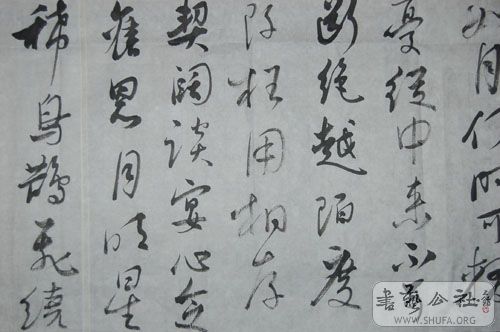 如月何时可掇
憂從中来不可
断绝越陌度
阡枉用相存
契阔谈宴心念
舊恩月明星
稀烏鹊飞绕
書藝公社
WWW.SHUFA.ORG